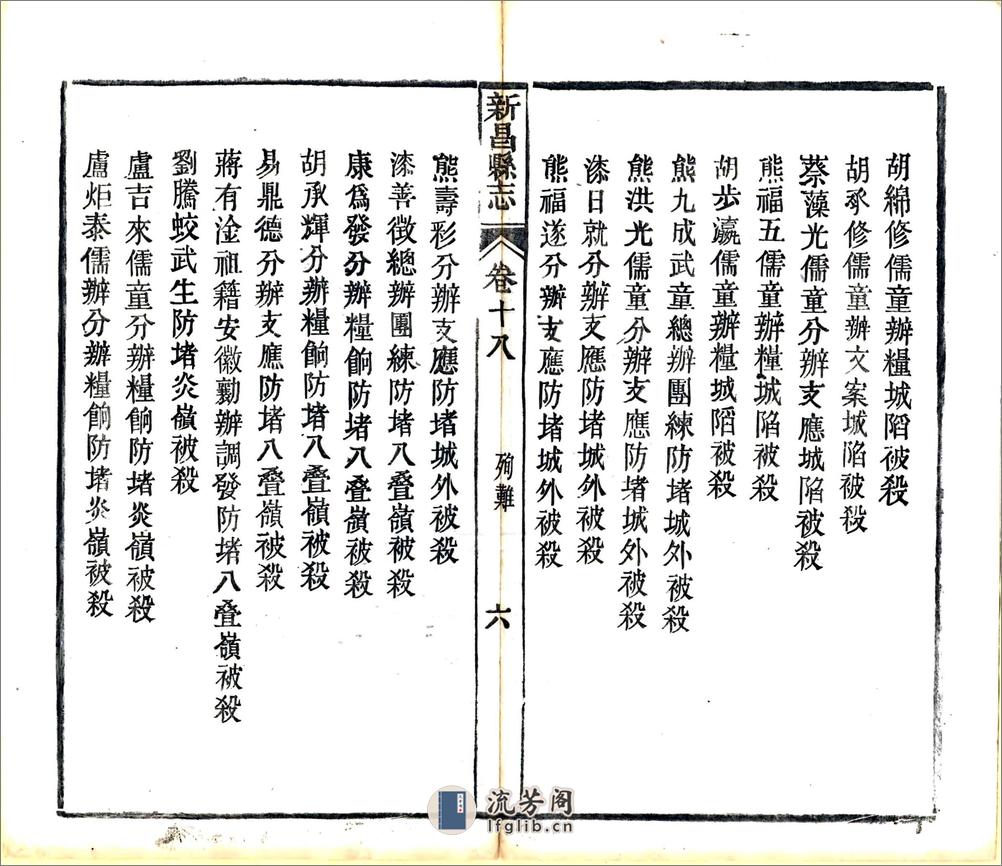 胡綿修儒童辦糧城陷被殺
胡承修儒童辦文案城陷被殺
蔡藻光儒童分辦支應城陷被殺
熊福五儒童辦糧城陷被殺
胡步瀛儒童辦糧城陷被殺
熊九成武童總辦團練防堵城外被殺
熊洪光儒童分辦支應防堵城外被殺
漆日就分辦支應防堵城外被殺
熊福遂分辦支應防堵城外被殺
新昌縣志
卷十八
殉難
六
熊壽彩分辦支應防堵城外被殺
漆善徵總辦團練防堵八叠嶺被殺
康爲發分辦糧餉防堵八叠嶺被殺
胡承輝分辦糧餉防堵八叠嶺被殺
易鼎德分辦支應防堵八叠嶺被殺
蔣有淦祖籍安徽勷辦調發防堵八叠嶺被殺
劉騰蛟武生防堵炎嶺被殺
盧吉來儒童分辦糧餉防堵炎嶺被殺
盧炬泰儒辦分辦糧餉防堵炎嶺被殺
流芳阁
lfglib.cn